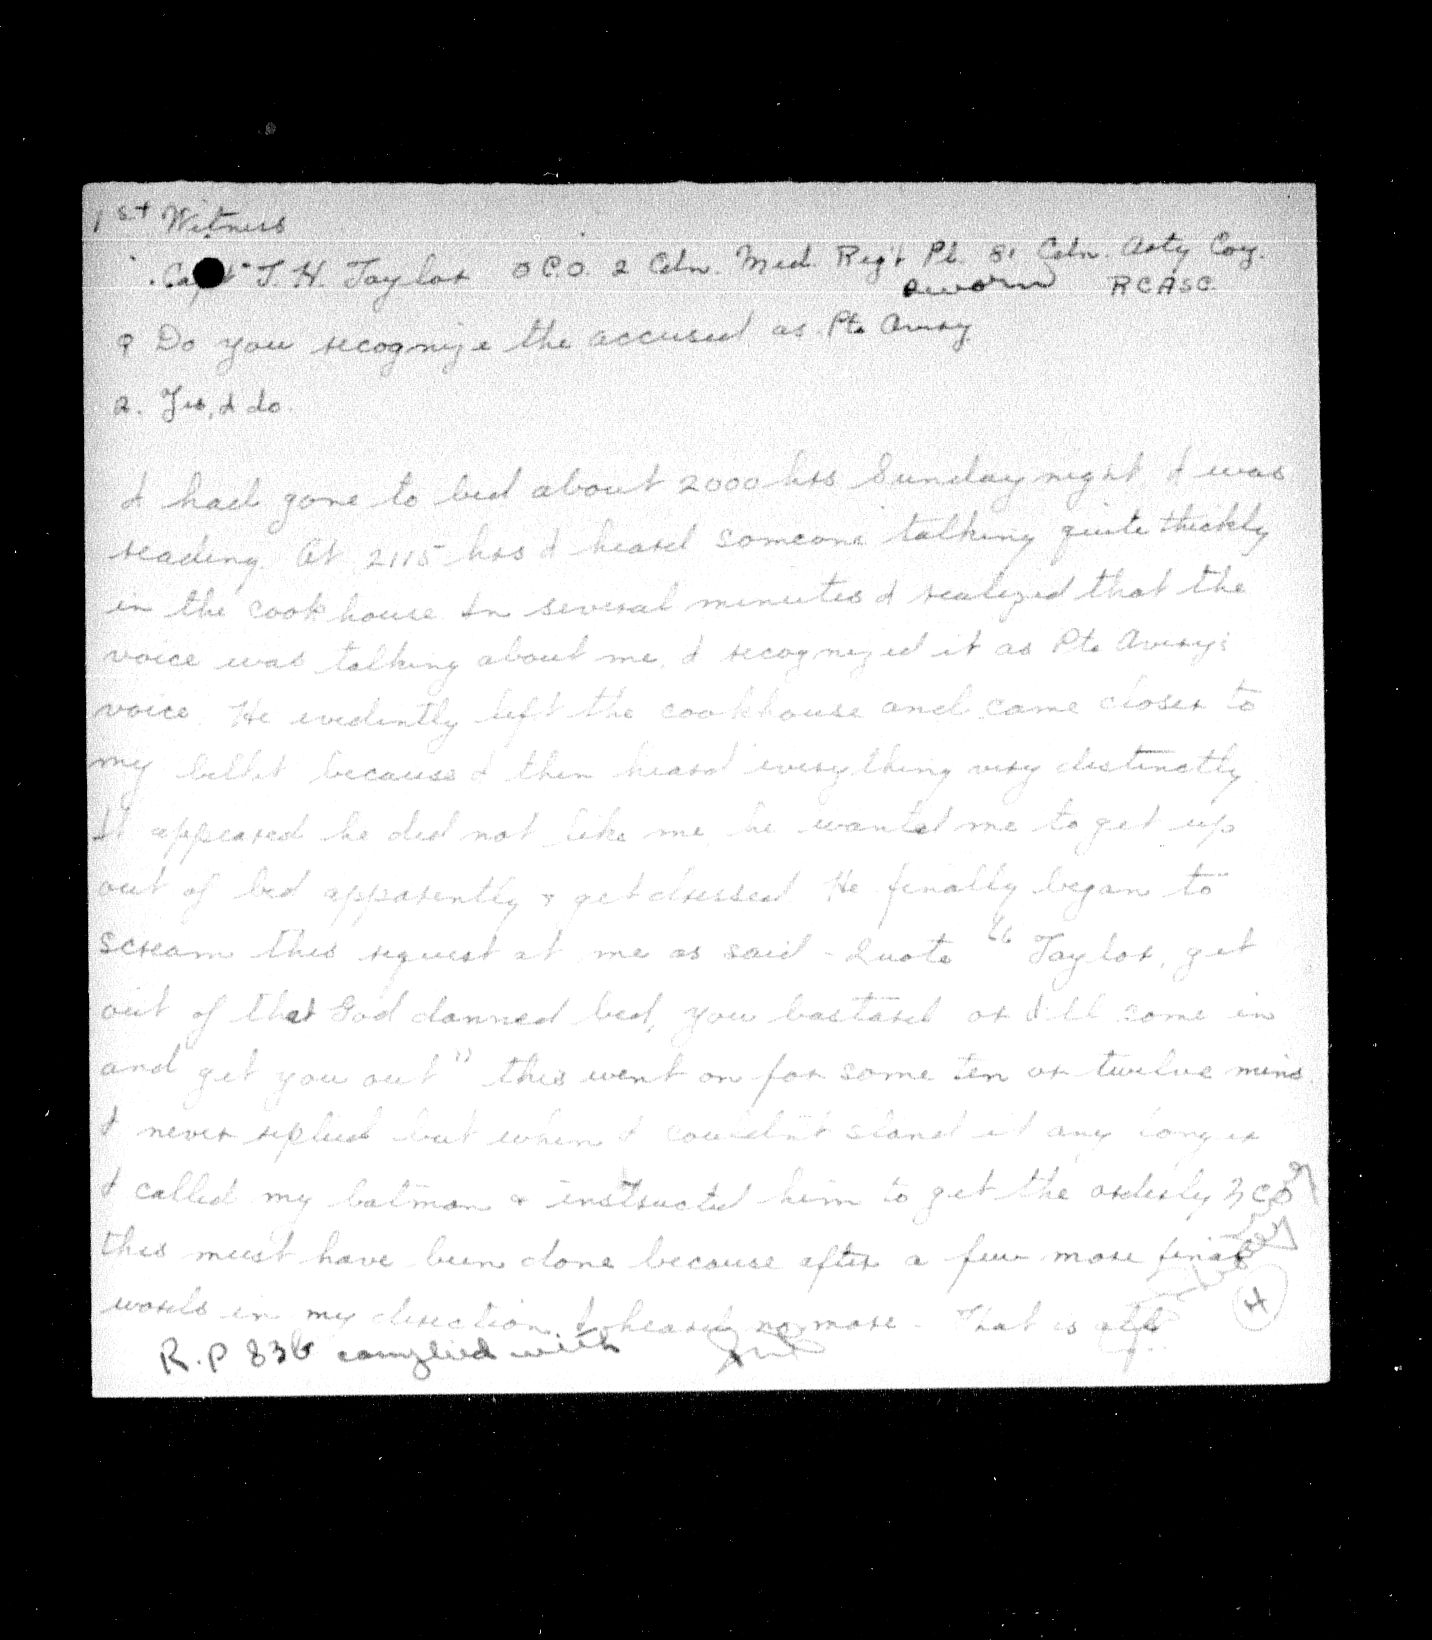 1st Witness
Capt J. H. Taylor O.C.O. 2 Cdn. Med. Regt Pl. 81 Cdn. Arty Coy.
sworn RCASC
Q Do you recognize the accused as Pte Avery
A. Yes, I do.
I had gone to bed about 2000 hrs Sunday night, I was
reading. At 2115 hrs I heard someone talking quite thickly
in the cookhouse. In several minutes I realized that the
voice was talking about me, I recognized it as Pte Avery's
voice. He evidently left the cookhouse and came closer to
my billet because I then heard everything very distinctly.
It appeared he did not like me, he wanted me to get up
out of bed apparently & get dressed. He finally began to
scream this request at me as said - Quote "Taylor, get
out of that God damned bed, you bastard or I'll come in
and get you out" this went on for some ten or twelve mins
I never replied but when I couldn't stand it any longer
I called my batman & instructed him to get the orderly NCO
this must have been done because after a few more final
words in my direction I heard no more - That is all
4
R.P 83B complied with